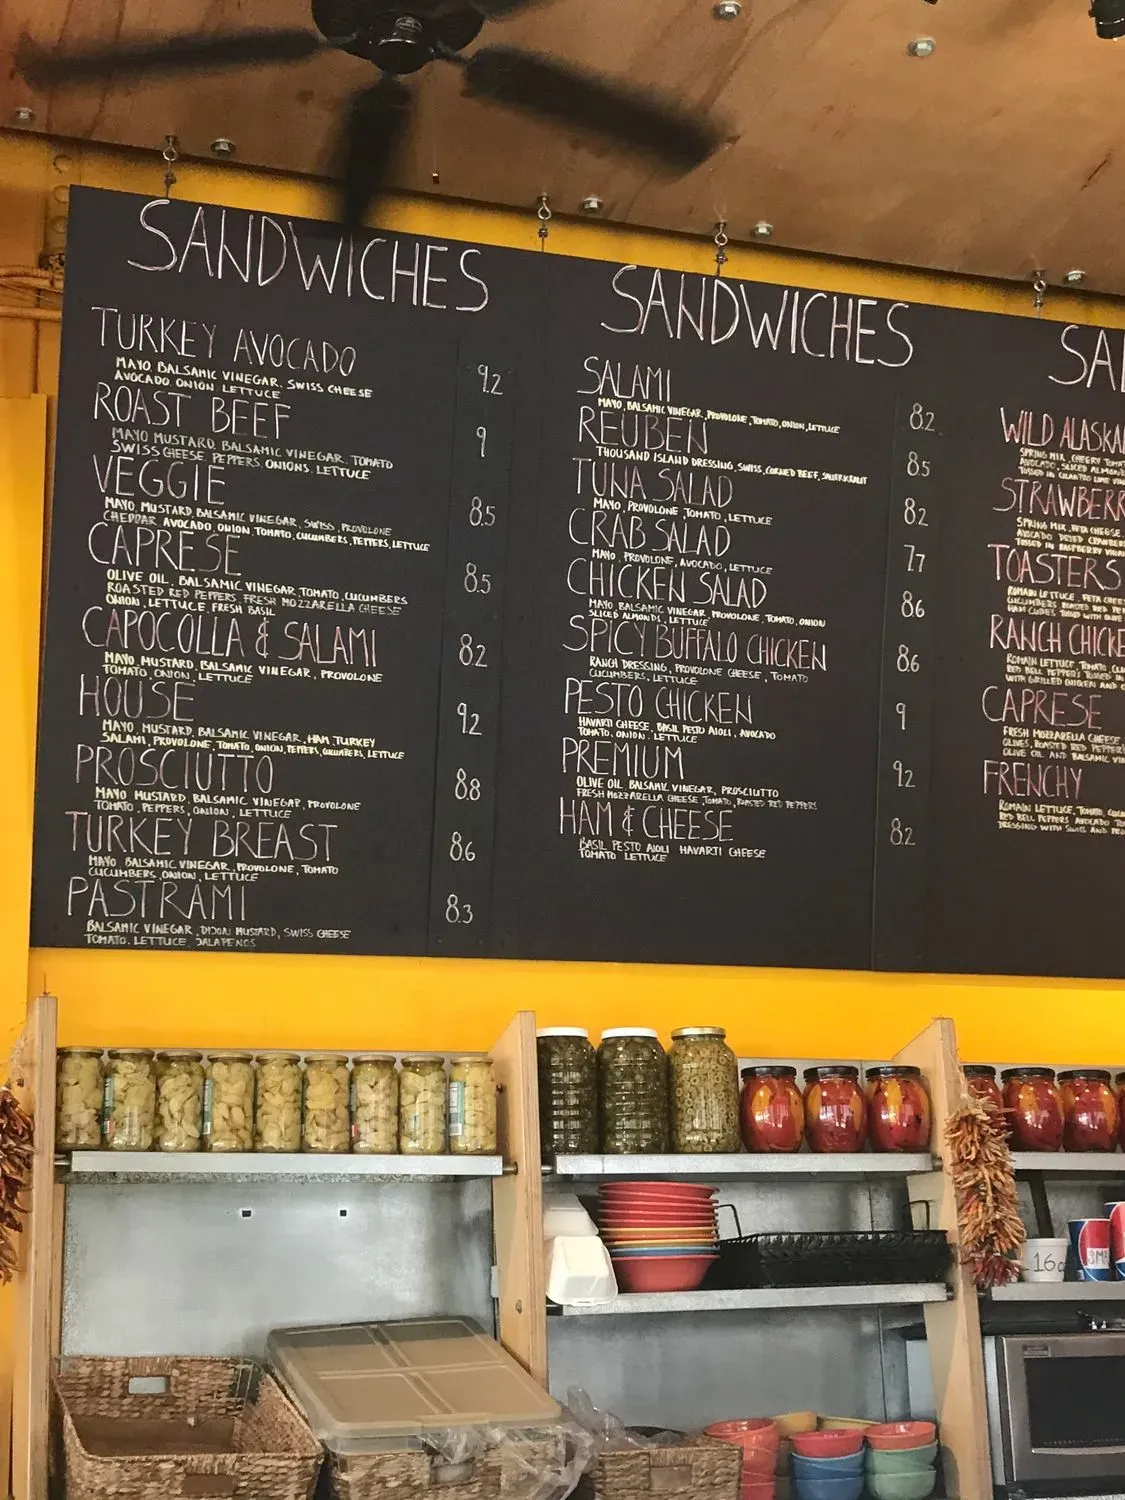 SANDWICHES
TURKEY AVOCADO 9.2
MAYO, BALSAMIC VINEGAR, SWISS CHEESE
AVOCADO, ONION, LETTUCE
ROAST BEEF 9
MAYO MUSTARD, BALSAMIC VINEGAR, TOMATO
SWISS CHEESE, PEPPERS, ONIONS, LETTUCE
VEGGIE 8.5
MAYO, MUSTARD, BALSAMIC VINEGAR, SWISS, PROVOLONE
CHEDDAR, AVOCADO, ONION, TOMATO, CUCUMBERS, PEPPERS, LETTUCE
CAPRESE 8.5
OLIVE OIL, BALSAMIC VINEGAR, TOMATO, CUCUMBERS
ROASTED RED PEPPERS, FRESH MOZZARELLA CHEESE
ONION, LETTUCE, FRESH BASIL
CAPOCOLLA & SALAMI 8.2
MAYO, MUSTARD, BALSAMIC VINEGAR, PROVOLONE
TOMATO, ONION, LETTUCE
HOUSE 9.2
MAYO, MUSTARD, BALSAMIC VINEGAR, HAM, TURKEY
SALAMI, PROVOLONE, TOMATO, ONION, PEPPERS, CUCUMBERS, LETTUCE
PROSCIUTTO 8.8
MAYO MUSTARD, BALSAMIC VINEGAR, PROVOLONE
TOMATO, PEPPERS, ONION, LETTUCE
TURKEY BREAST 8.6
MAYO, BALSAMIC VINEGAR, PROVOLONE, TOMATO
CUCUMBERS, ONION, LETTUCE
PASTRAMI 8.3
BALSAMIC VINEGAR, DIJON MUSTARD, SWISS CHEESE
TOMATO, LETTUCE, JALAPENOS
SANDWICHES
SALAMI 8.2
MAYO, BALSAMIC VINEGAR, PROVOLONE, TOMATO, ONION, LETTUCE
REUBEN 8.5
THOUSAND ISLAND DRESSING, SWISS, CORNED BEEF, SAUERKRAUT
TUNA SALAD 8.2
MAYO, PROVOLONE, TOMATO, LETTUCE
CRAB SALAD 7.7
MAYO, PROVOLONE, AVOCADO, LETTUCE
CHICKEN SALAD 8.6
MAYO, BALSAMIC VINEGAR PROVOLONE, TOMATO, ONION
SLICED ALMONDS, LETTUCE
SPICY BUFFALO CHICKEN 8.6
RANCH DRESSING, PROVOLONE CHEESE, TOMATO
CUCUMBERS, LETTUCE
PESTO CHICKEN 9
HAVARTI CHEESE, BASIL PESTO AIOLI, AVOCADO
TOMATO, ONION, LETTUCE
PREMIUM 9.2
OLIVE OIL, BALSAMIC VINEGAR, PROSCIUTTO
FRESH MOZZARELLA CHEESE, TOMATO, ROASTED RED PEPPERS
HAM & CHEESE 8.2
BASIL PESTO AIOLI HAVARTI CHEESE
TOMATO LETTUCE
SA
WILD ALASKA
SPRING MIX, CHERRY
AVOCADO, SLICED ALMOND
TOSSED IN CILANTRO LIME
STRAWBERR
SPRING MIX, FETA CHEESE
AVOCADO DRIED CRANBERR
TOSSED IN RASPBERRY
TOASTERS
ROMAIN LETTUCE, FETA CHEES
CUCUMBERS ROASTED RED
HAM CUBES TOSSED WITH OLIVE
RANCH CHICKE
ROMAIN LETTUCE, TOMATO,
RED BELL PEPPERS TOSSED IN
WITH GRILLED CHICKEN AND
CAPRESE
FRESH MOZZARELLA CHEESE
OLIVES, ROASTED RED PEPPER
OLIVE OIL AND BALSAMIC
FRENCHY
ROMAIN LETTUCE, TOMATO,
RED BELL PEPPERS AVOCADO
DRESSING WITH SWISS AND
16
SM